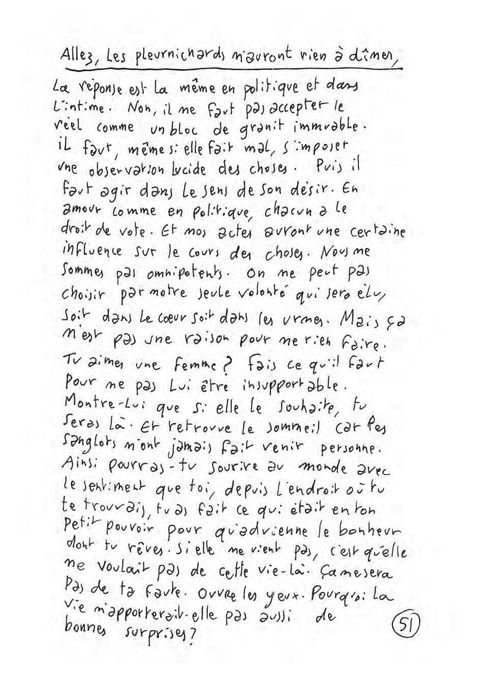 Allez, les pleurnichards n'auront rien à dîner,
La réponse est la même en politique et dans
l'intime. Non, il ne faut pas accepter le
réel comme un bloc de granit immuable.
il faut, même si elle fait mal, s'imposer
une observation lucide des choses. Puis il
faut agir dans le sens de son désir. En
amour comme en politique, chacun a le
droit de vote. Et nos actes auront une certaine
influence sur le cours des choses. Nous ne
sommes pas omnipotents. On ne peut pas
choisir par notre seule volonté qui sera élu,
soit dans le cœur soit dans les urnes. Mais ça
n'est pas une raison pour ne rien faire.
Tu aimes une femme? Fais ce qu'il faut
pour ne pas lui être insupportable.
Montre-lui que si elle le souhaite, tu
seras là. Et retrouve le sommeil car les
sanglots n'ont jamais fait venir personne.
Ainsi pourras-tu sourire au monde avec
le sentiment que toi, depuis l'endroit où tu
te trouvais, tu as fait ce qui était en ton
petit pouvoir pour qu'advienne le bonheur
dont tu rêves. Si elle ne vient pas, c'est qu'elle
ne voulait pas de cette vie-là. Ça ne sera
pas de ta faute. Ouvre les yeux. Pourquoi la
vie n'apporterait-elle pas aussi de
bonnes surprises?
51